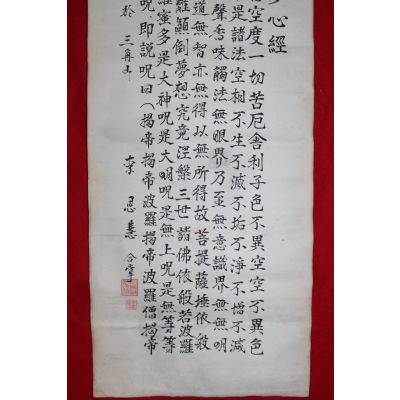 心經
空度一切苦厄舍利子色不異空空不異色
是諸法空相不生不滅不垢不淨不增不減
聲香味觸法無眼界乃至無意識界無無明
道無智亦無得以無所得故菩提薩埵依般
離顛倒夢想究竟涅槃三世諸佛依般若波羅
蜜多是大神呪是大明呪是無上呪是無等等
呪即說呪曰(揭帝揭帝波羅揭帝波羅僧揭帝
於 三角山
恩慧 合掌